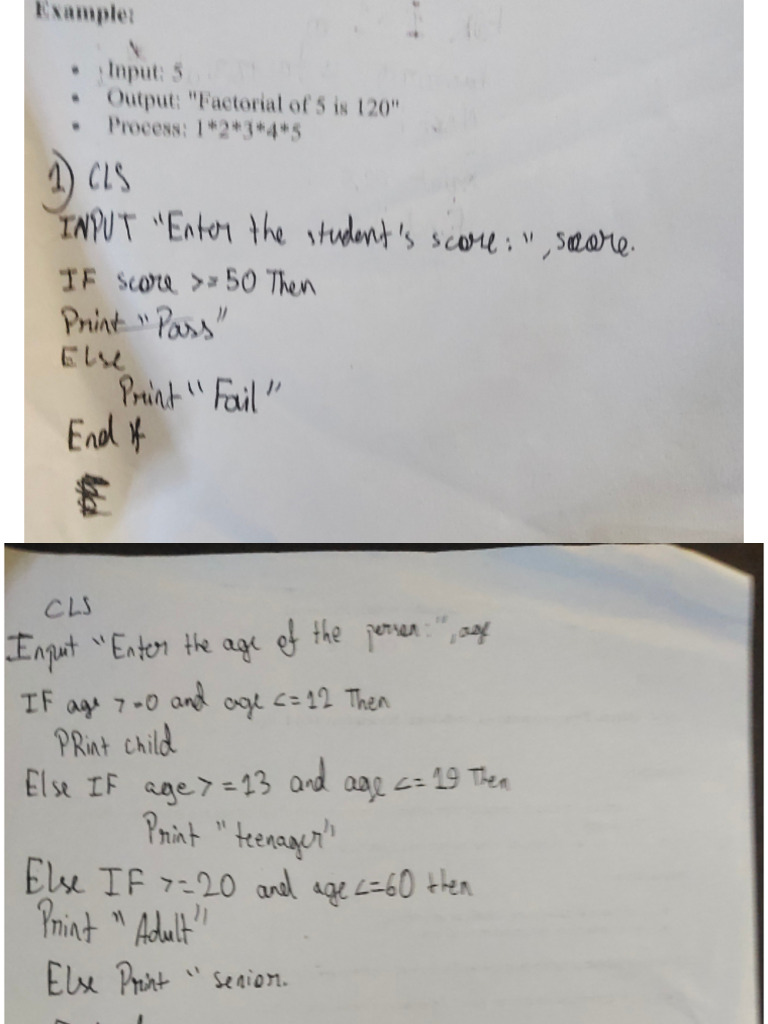 Example:
• Input: 5
• Output: "Factorial of 5 is 120"
• Process: 1*2*3*4*5
1) CLS
INPUT "Enter the student's score:", score.
IF score >= 50 Then
Print "Pass"
Else
Print "Fail"
End If
CLS
Input "Enter the age of the person:", age
IF age >=0 and age <=12 Then
PRint child
Else IF age >=13 and age <=19 Then
Print "teenager"
Else IF >=20 and age <=60 then
Print "Adult"
Else Print " senior.